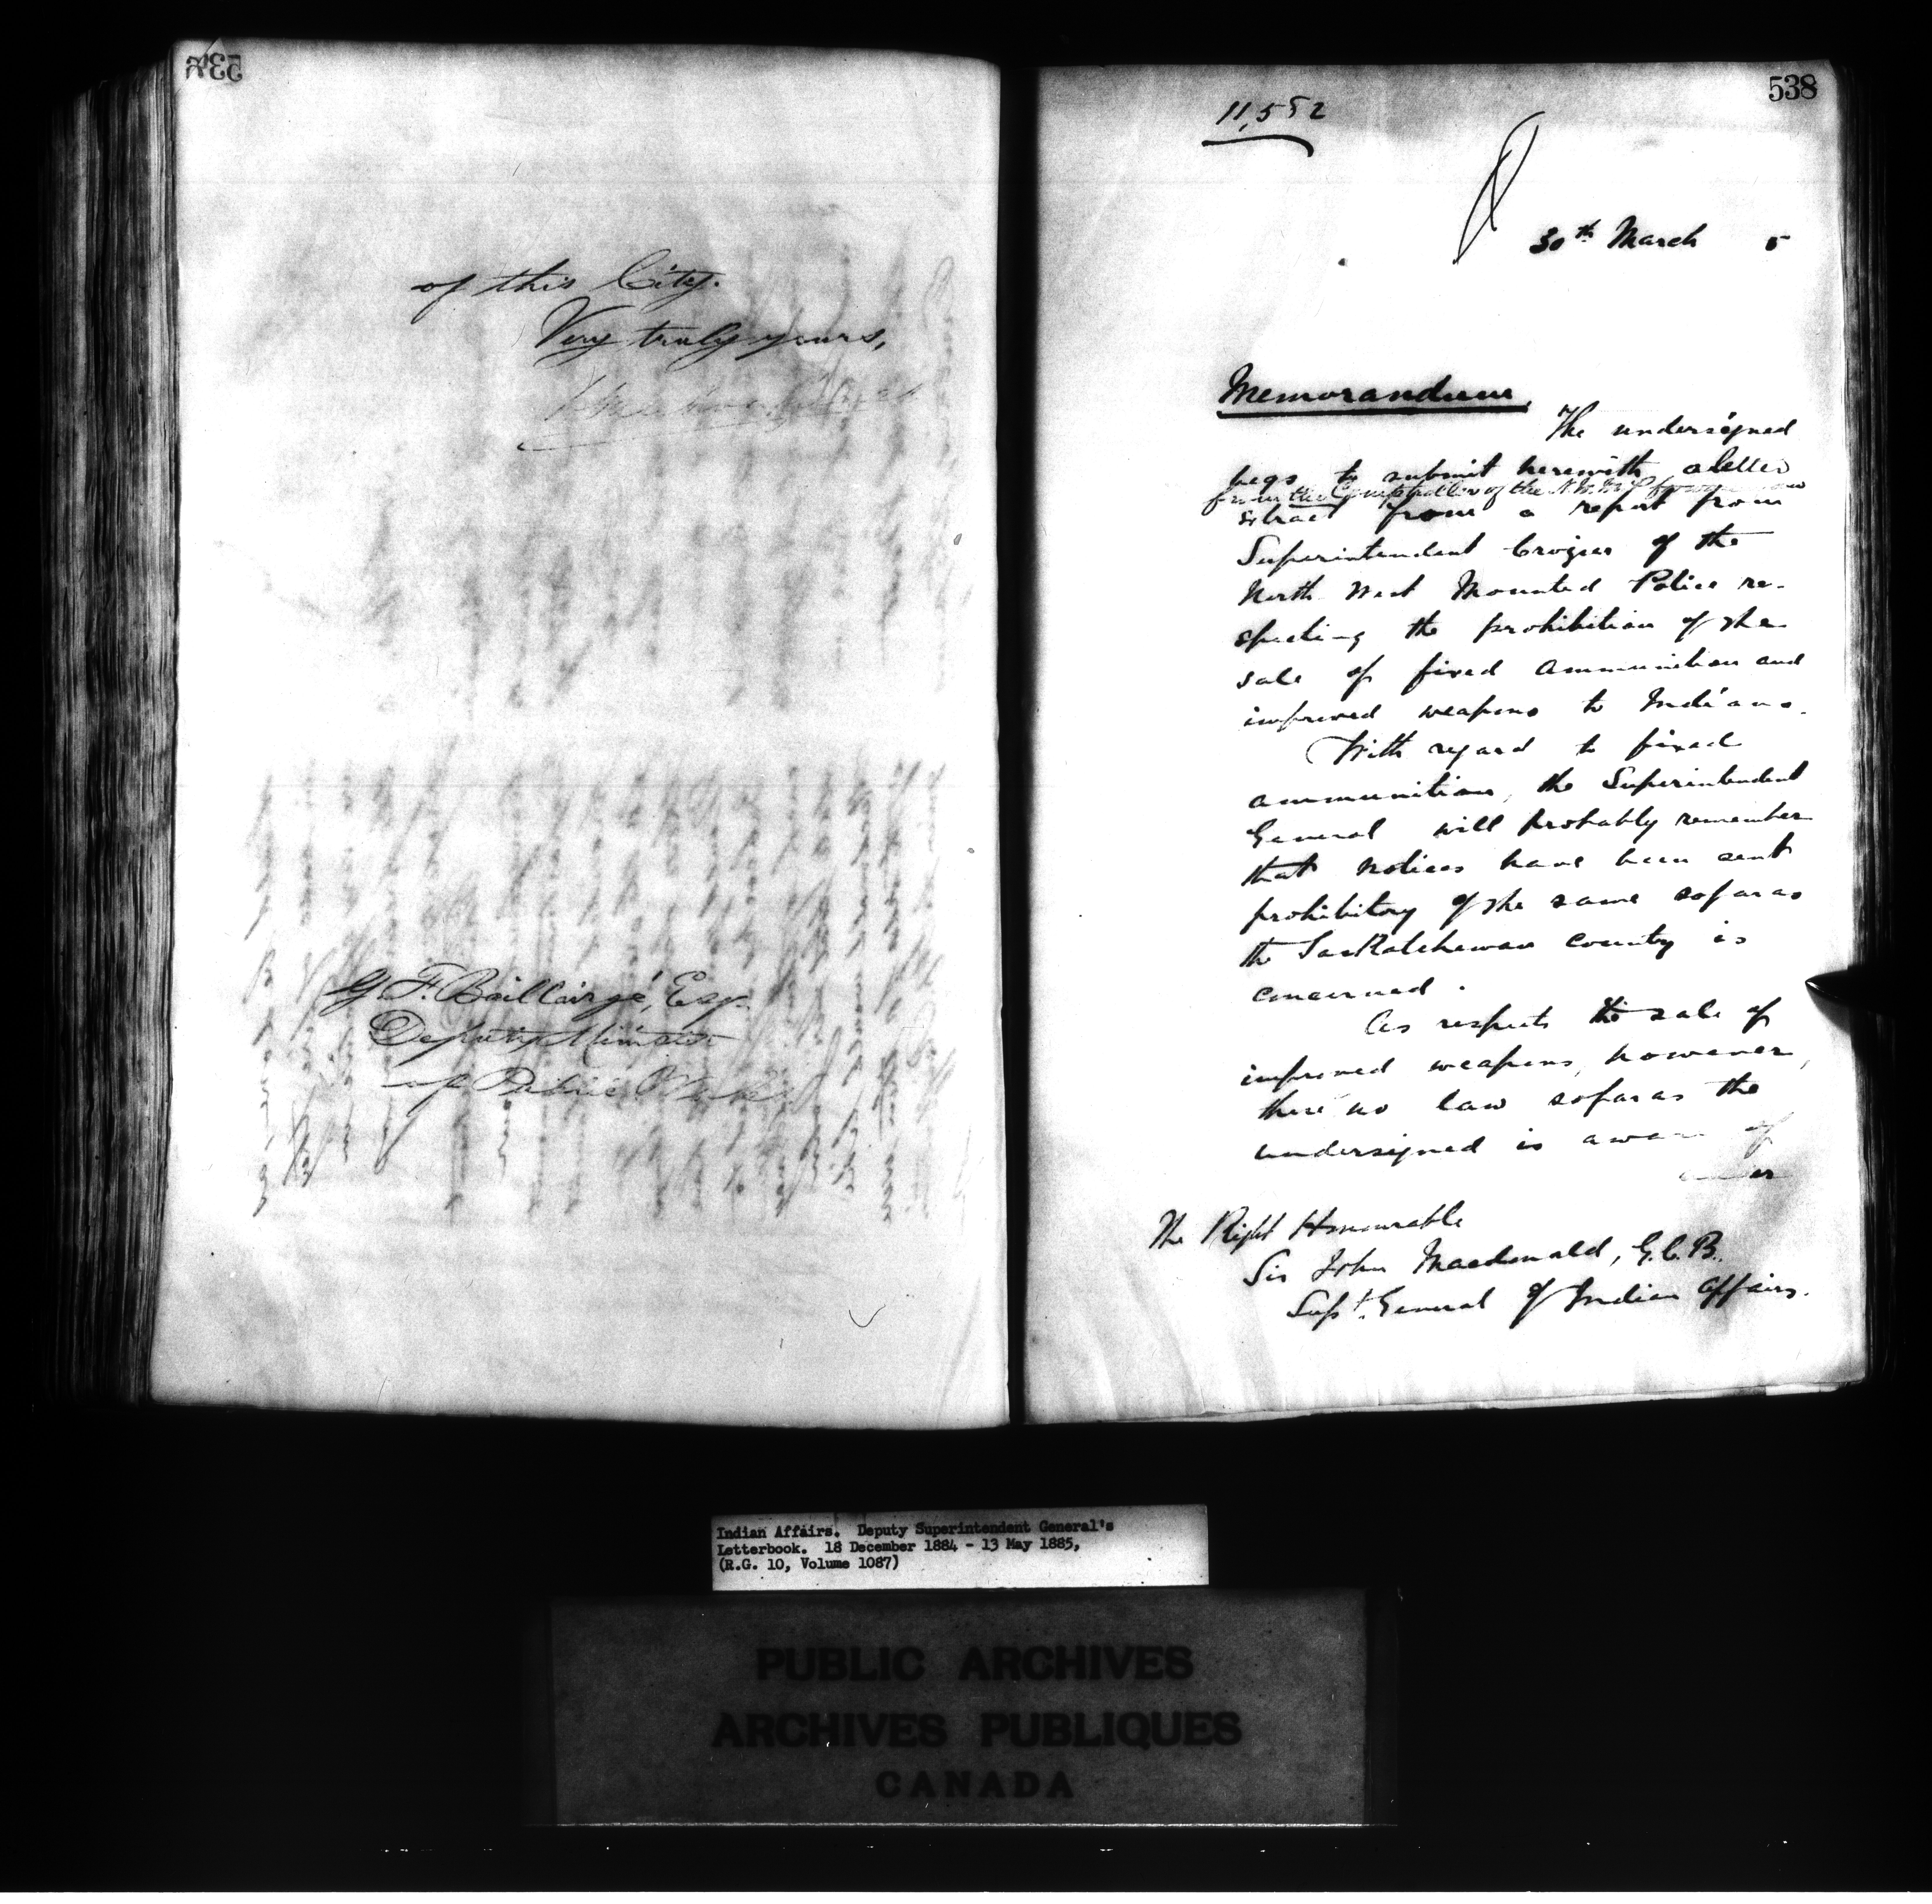 of this City.
Very truly yours,
G F. Baillairgé, Esq.
Deputy Minister
of Public Works
538
11,552
30th March 5
Memorandum.
The undersigned
begs to submit herewith a letter
from the Comptroller of the N.W.M.P.
extract from a report from
Superintendent Crozier of the
North West Mounted Police re-
specting the prohibition of the
sale of fixed ammunition and
improved weapons to Indians.
With regard to fixed
ammunition, the Superintendent
General will probably remember
that notices have been sent
prohibitory of the same so far as
the Saskatchewan country is
concerned.
As respects the sale of
improved weapons, however,
there no law so far as the
undersigned is aware of
The Right Honourable
Sir John Macdonald, G.C.B.
Supt. General of Indian Affairs.
Indian Affairs. Deputy Superintendent General's
Letterbook. 18 December 1884 - 13 May 1885,
(R.G. 10, Volume 1087)
PUBLIC ARCHIVES
ARCHIVES PUBLIQUES
CANADA